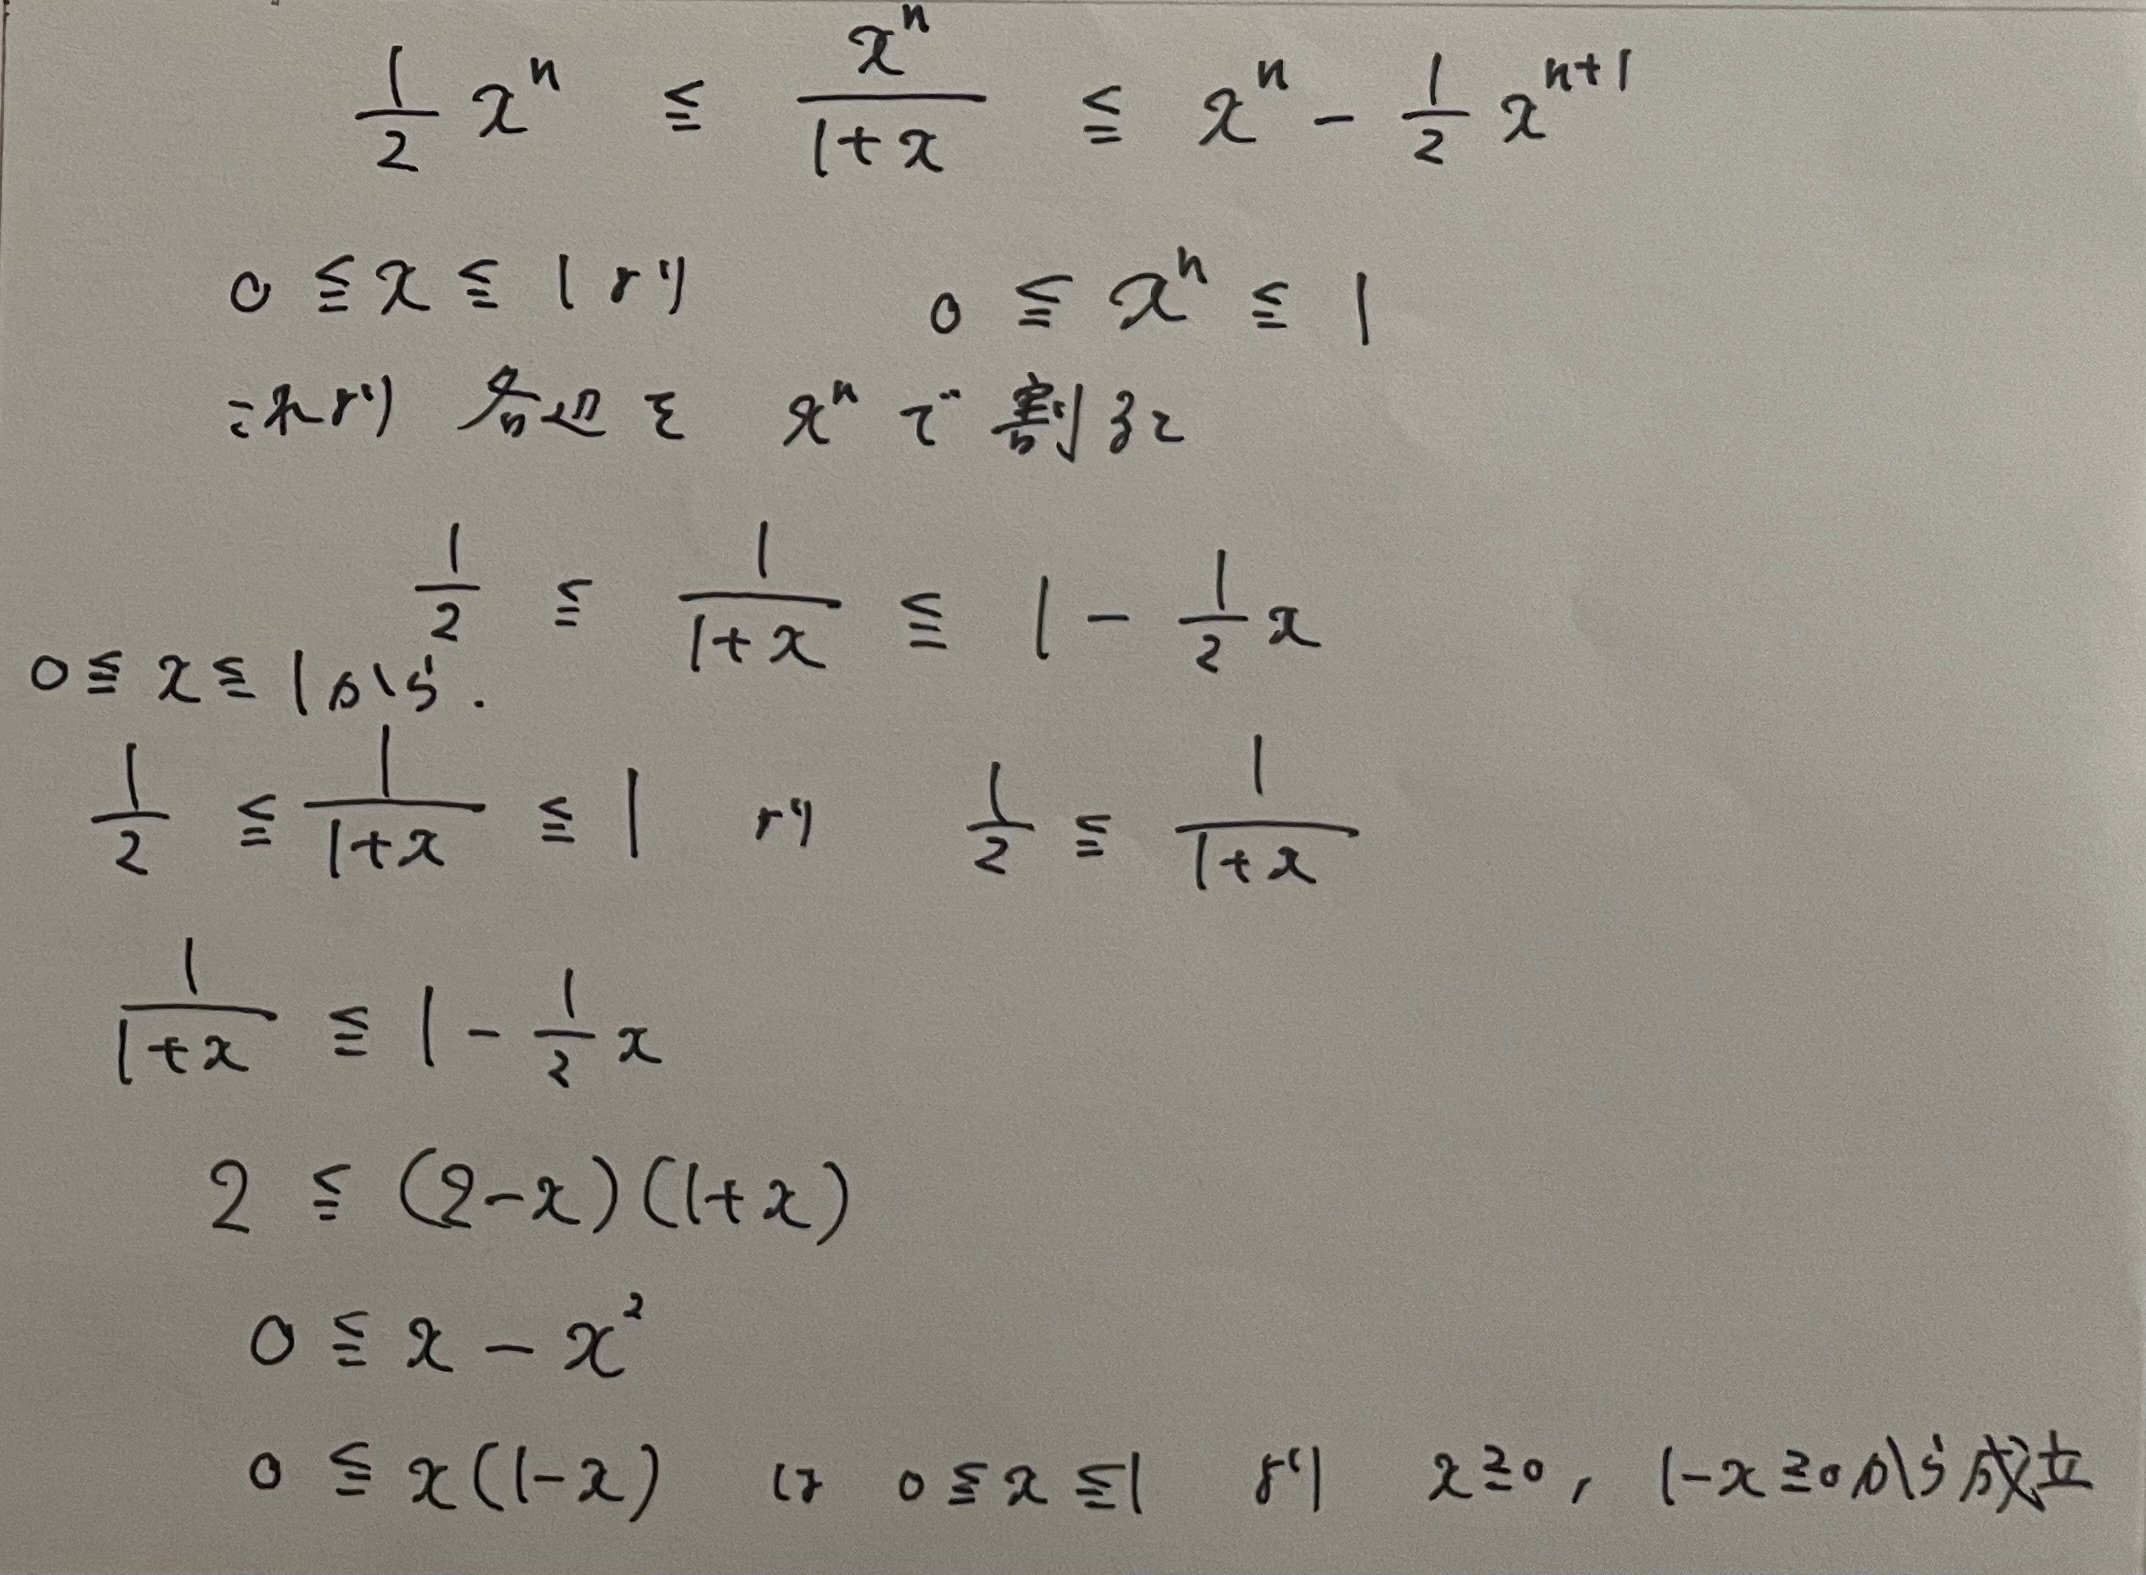 1/2 xⁿ ≦ xⁿ/(1+x) ≦ xⁿ - 1/2 xⁿ⁺¹
0 ≦ x ≦ 1 より 0 ≦ xⁿ ≦ 1
これより 各辺を xⁿ で割ると
1/2 ≦ 1/(1+x) ≦ 1 - 1/2 x
0 ≦ x ≦ 1 から.
1/2 ≦ 1/(1+x) ≦ 1 より 1/2 ≦ 1/(1+x)
1/(1+x) ≦ 1 - 1/2 x
2 ≦ (2-x)(1+x)
0 ≦ x - x²
0 ≦ x(1-x) は 0 ≦ x ≦ 1 より x≧0, 1-x≧0から成立